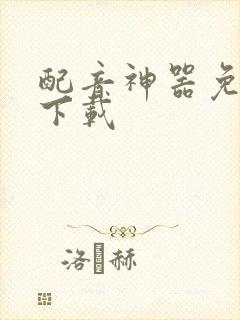 配音神器免
下载
洛赫